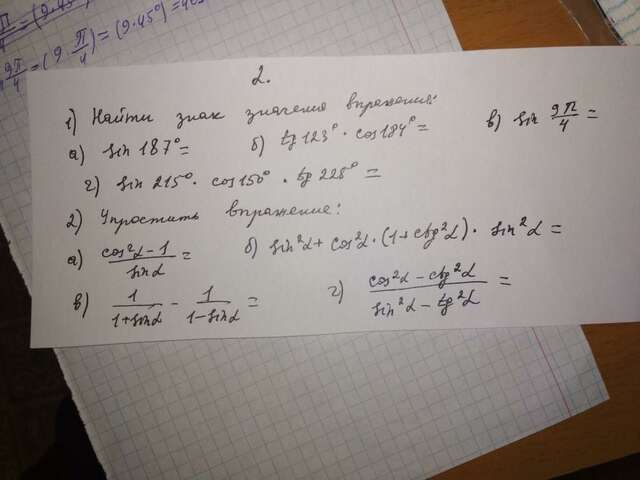 π/4 = (9·45°) = 405
9π/4 = (9·π/4) = (9·45°) = 405
2.
1) Найти знак значения выражения:
а) sin 187° =   б) tg 123° · cos 184° =   в) sin 9π/4 =
г) sin 215° · cos 150° · tg 228° =
2) Упростить выражение:
а) (cos²α - 1)/sinα =   б) sin²α + cos²α · (1 + ctg²α) · sin²α =
в) 1/(1+sinα) - 1/(1-sinα) =   г) (cos²α - ctg²α)/(sin²α - tg²α) =